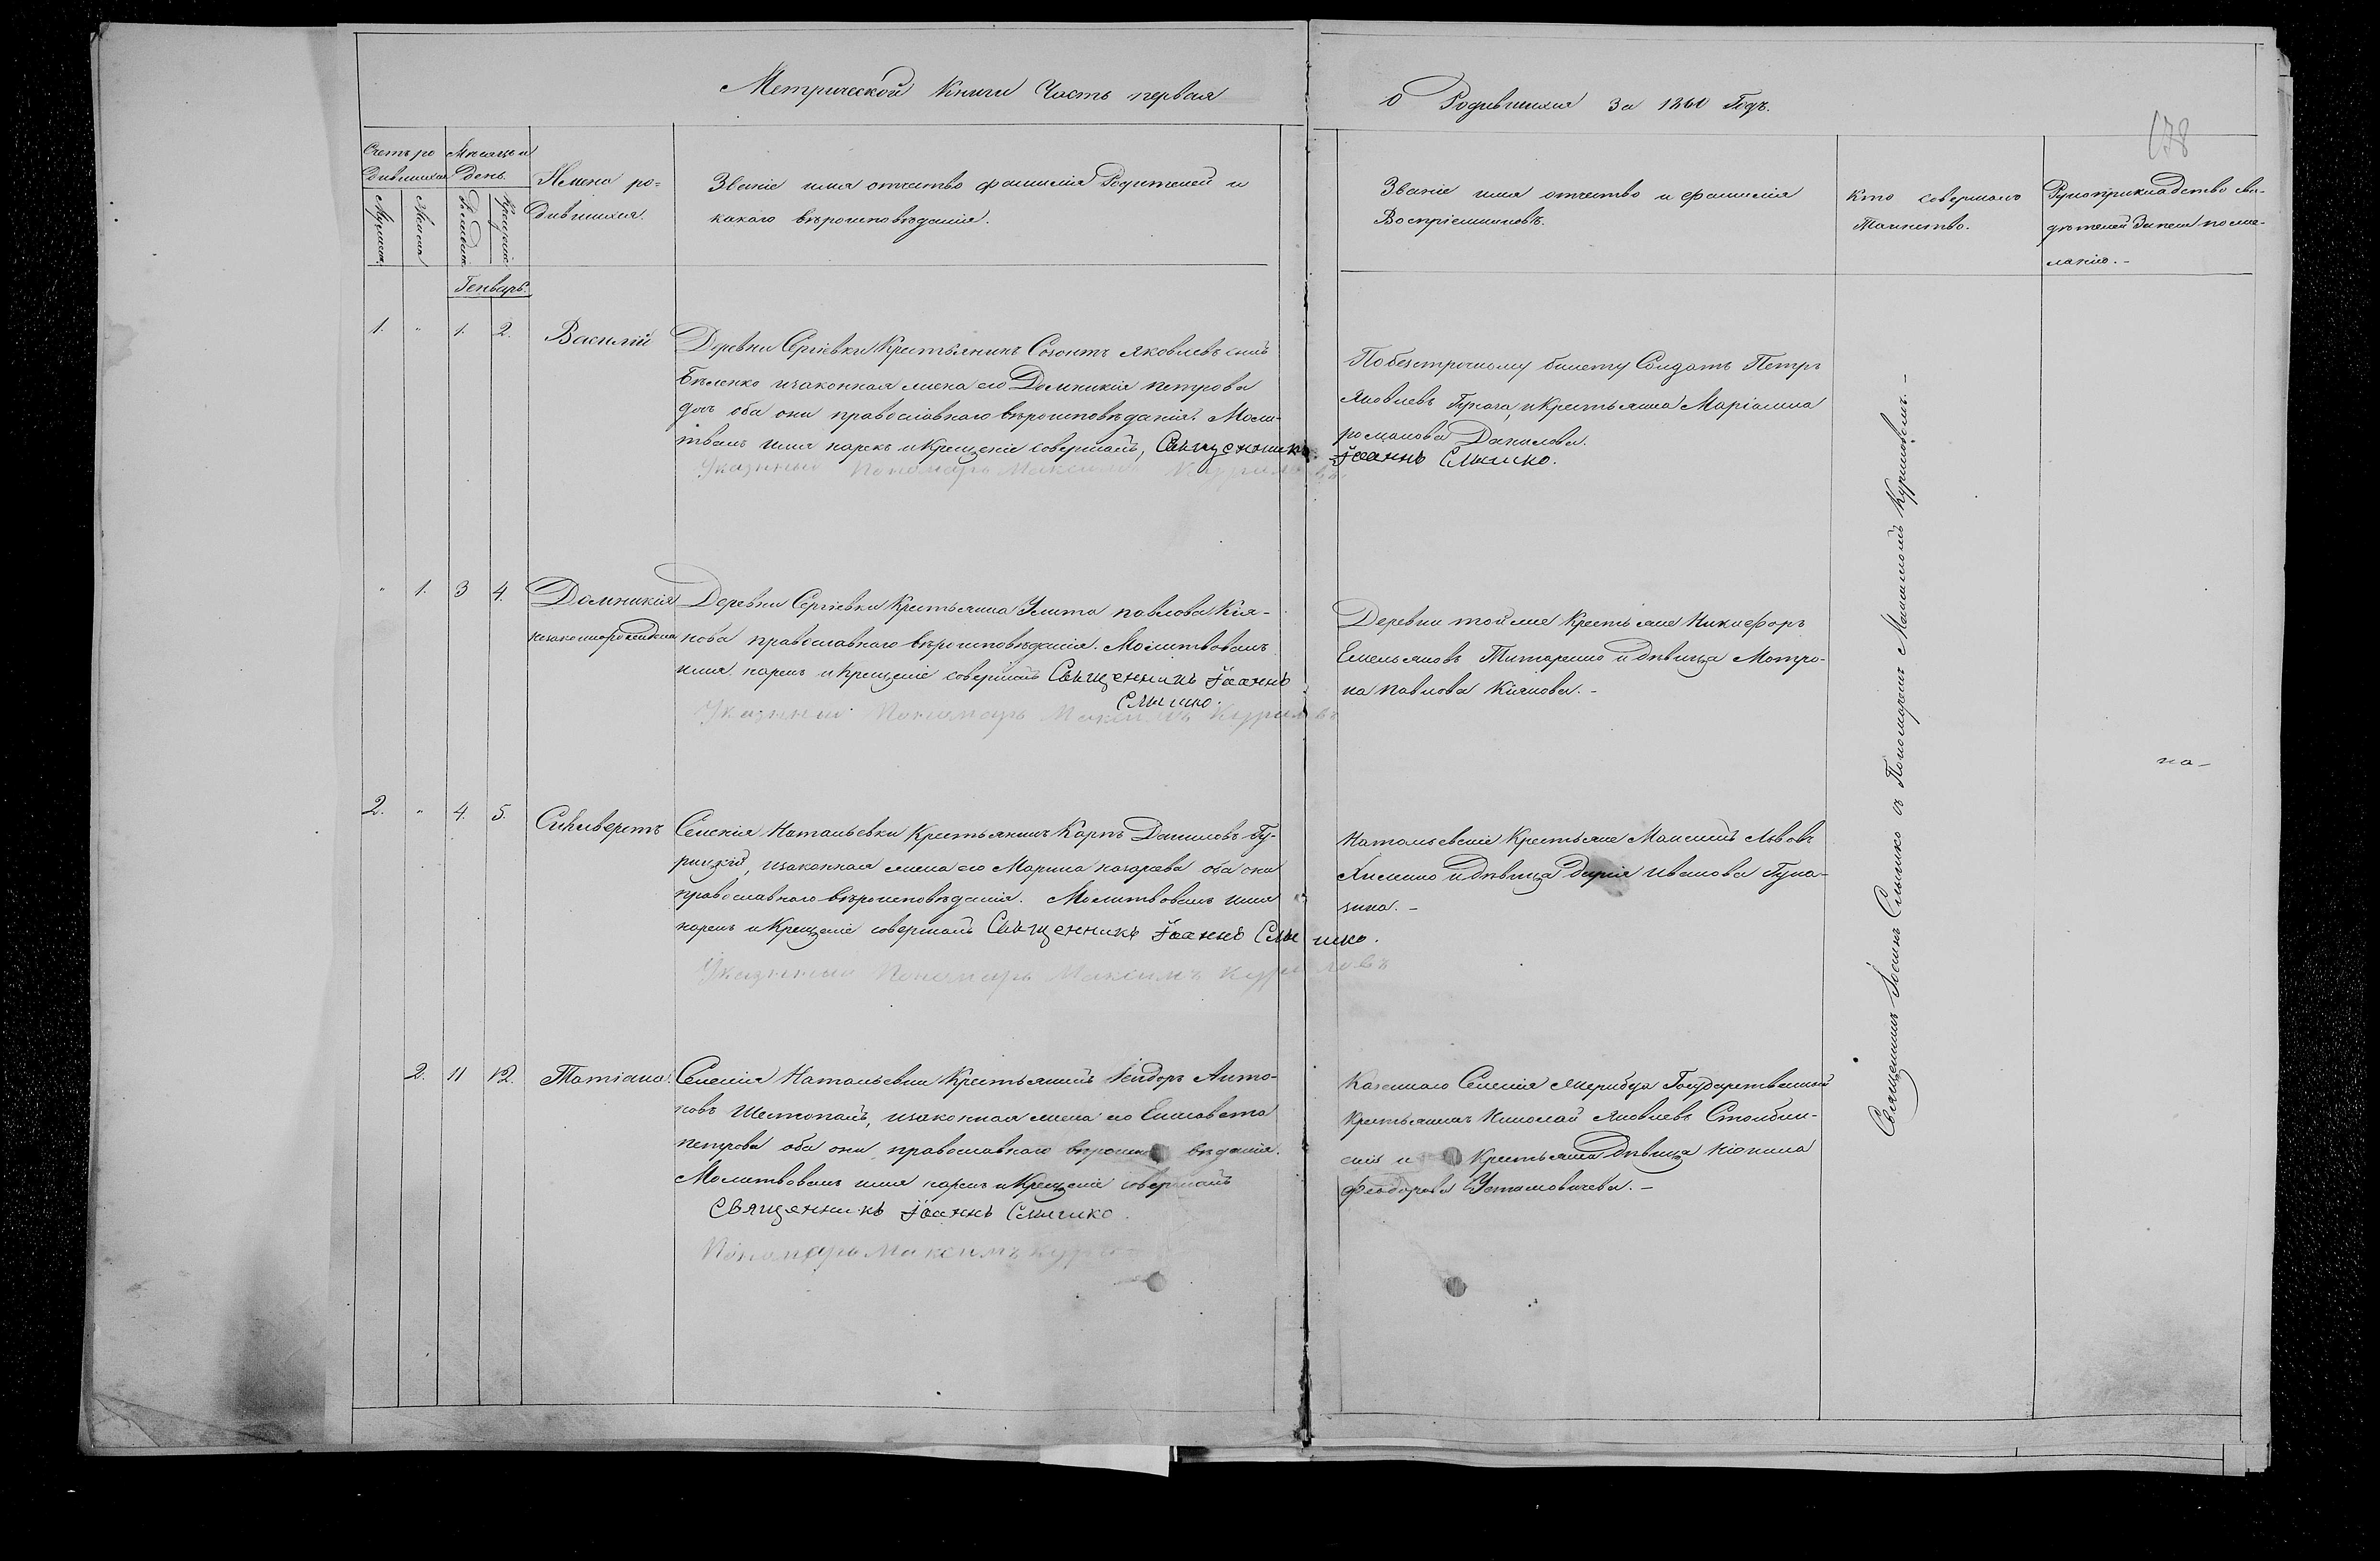 Метрической Книги Часть первая
о Родившихся За 1860 Годъ.
178
Счетъ ро
дившихся
Мѣсяцъ и
День
Имена ро=
дившихся.
Званіе имя отчество фамилія Родителей и
какого вѣроисповѣданія.
Званіе имя отчество и фамилія
Воспріемниковъ.
Кто совершалъ
Таинство.
Рукоприкладство сви-
дѣтелей Записи по же-
ланію. -
Мужеска
Женска
Рожденія
Крещенія
Генварь.
1. " 1. 2. Василій
Деревни Сергіевки Крестьянинъ Созонтъ Яковлевъ сынъ
Бѣленко и законная жена его Домникія петрова
дочь оба они православнаго вѣроисповѣданія. Моли-
твовалъ имя нарекъ и Крещеніе совершалъ, Священникъ
Іоаннъ Слышко.
Указнный Пономарь Максимъ Куриловъ
По безсрочному билету Солдатъ Петръ
Яковлевъ и Крестьянка Маріамна
романова Данилова.
" 1. 3 4. Домникія
незаконнорожденна
Деревни Сергіевки Крестьянка Улита павлова Кія-
нова православнаго вѣроисповѣданія. Молитвовалъ
имя нарекъ и Крещеніе совершалъ Священникъ Іоаннъ
Слышко.
Указнный Пономарь Максимъ Куриловъ
Деревни той же Крестьяне Никифоръ
Емельяновъ Титаренко и дѣвица Мотро-
на павлова Кіянова. -
на-
2. " 4. 5. Сильверстъ
Селенія Натальевки Крестьянинъ Карпъ Даниловъ Гу-
рицкій, и законная жена его Марина назарева оба они
православнаго вѣроисповѣданія. Молитвовалъ имя
нарекъ и Крещеніе совершалъ Священникъ Іоаннъ Слышко.
Указнный Пономарь Максимъ Куриловъ
Натальевскіе Крестьяне Максимъ Львовъ
и дѣвица Дарія Иванова Гука-
зина. -
2. 11 12. Татіана.
Селенія Натальевки Крестьянинъ Исидоръ Анто-
новъ Шестопалъ, и законная жена его Елисавета
петрова оба они православнаго вѣроиспо вѣданія.
Молитвовалъ имя нарекъ и Крещеніе совершалъ
Священникъ Іоаннъ Слышко.
Пономарь Максимъ Кури
Казеннаго Селенія Государственный
Крестьянинъ Николай Яковлевъ Столбин-
скій и Крестьянка дѣвица Кіонила
феодорова Устимовичева. -
Священникъ Іоаннъ Слышко съ Пономаремъ Максимомъ Куриловымъ. -